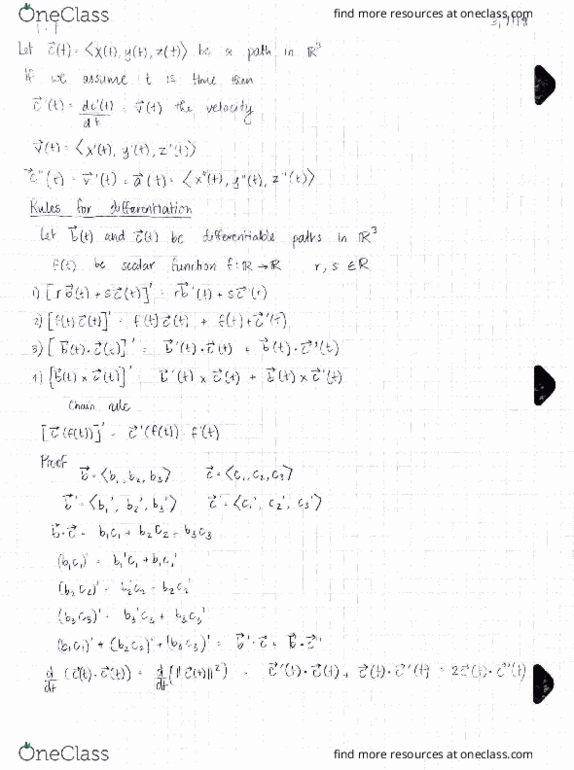 OneClass find more resources at oneclass.com
Let c⃗(t) = ⟨x(t), y(t), z(t)⟩ be a path in ℝ³
If we assume t is time then
c⃗'(t) = dc⃗(t)/dt = v⃗(t) the velocity
v⃗(t) = ⟨x'(t), y'(t), z'(t)⟩
c⃗''(t) = v⃗'(t) = a⃗(t) = ⟨x''(t), y''(t), z''(t)⟩
Rules for differentiation
Let b⃗(t) and c⃗(t) be differentiable paths in ℝ³
f(t) be scalar function f: ℝ → ℝ r, s ∈ ℝ
1) [r b⃗(t) + s c⃗(t)]' = r b⃗'(t) + s c⃗'(t)
2) [f(t) c⃗(t)]' = f'(t) c⃗(t) + f(t) c⃗'(t)
3) [b⃗(t) · c⃗(t)]' = b⃗'(t) · c⃗(t) + b⃗(t) · c⃗'(t)
4) [b⃗(t) × c⃗(t)]' = b⃗'(t) × c⃗(t) + b⃗(t) × c⃗'(t)
Chain rule
[c⃗(f(t))]' = c⃗'(f(t)) · f'(t)
Proof
b⃗ = ⟨b₁, b₂, b₃⟩ c⃗ = ⟨c₁, c₂, c₃⟩
b⃗' = ⟨b₁', b₂', b₃'⟩ c⃗' = ⟨c₁', c₂', c₃'⟩
b⃗·c⃗ = b₁c₁ + b₂c₂ + b₃c₃
(b₁c₁)' = b₁'c₁ + b₁c₁'
(b₂c₂)' = b₂'c₂ + b₂c₂'
(b₃c₃)' = b₃'c₃ + b₃c₃'
(b₁c₁)' + (b₂c₂)' + (b₃c₃)' = b⃗'·c⃗ + b⃗·c⃗'
d/dt (c⃗(t)·c⃗(t)) = d/dt (‖c⃗(t)‖²) = c⃗'(t)·c⃗(t) + c⃗(t)·c⃗'(t) = 2c⃗(t)·c⃗'(t)
OneClass find more resources at oneclass.com